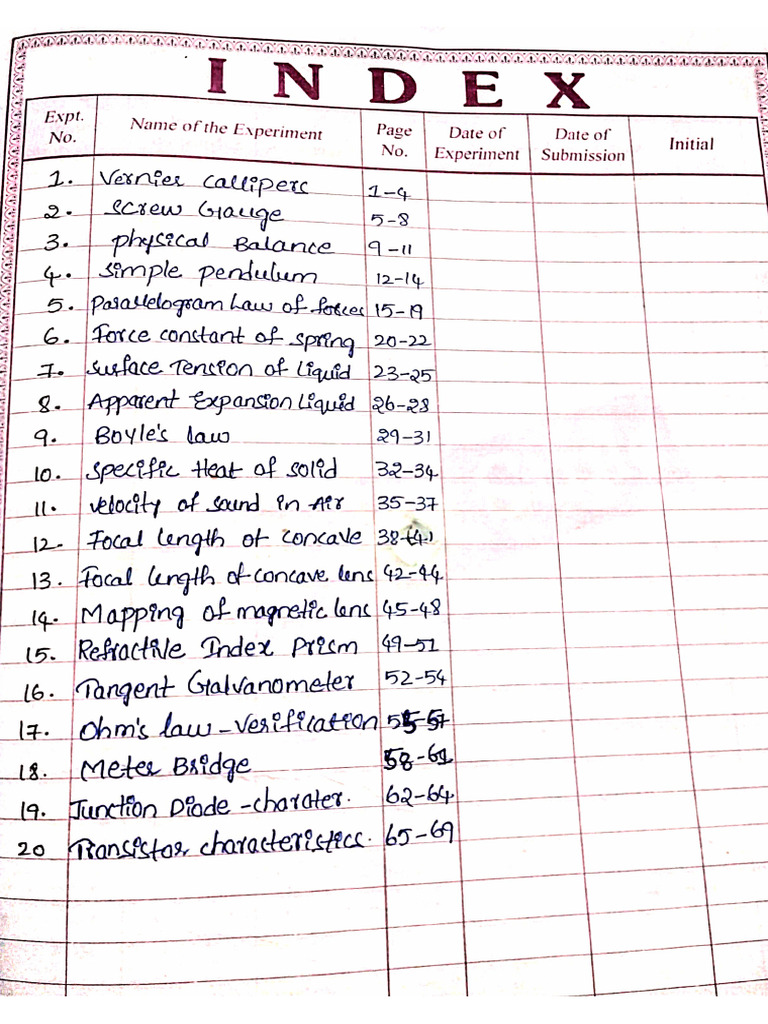 INDEX
Expt. No. Name of the Experiment Page No. Date of Experiment Date of Submission Initial
1. Vernier Callipers 1-4
2. Screw Gauge 5-8
3. Physical Balance 9-11
4. Simple pendulum 12-14
5. Parallelogram Law of forces 15-19
6. Force constant of spring 20-22
7. Surface Tension of Liquid 23-25
8. Apparent Expansion Liquid 26-28
9. Boyle's law 29-31
10. Specific Heat of solid 32-34
11. velocity of sound in Air 35-37
12. Focal length of concave 38-41
13. Focal length of concave lens 42-44
14. Mapping of magnetic lens 45-48
15. Refractive Index Prism 49-51
16. Tangent Galvanometer 52-54
17. Ohm's law-verification 55-57
18. Meter Bridge 58-61
19. Junction Diode-charater. 62-64
20 Transistor characteristics. 65-69